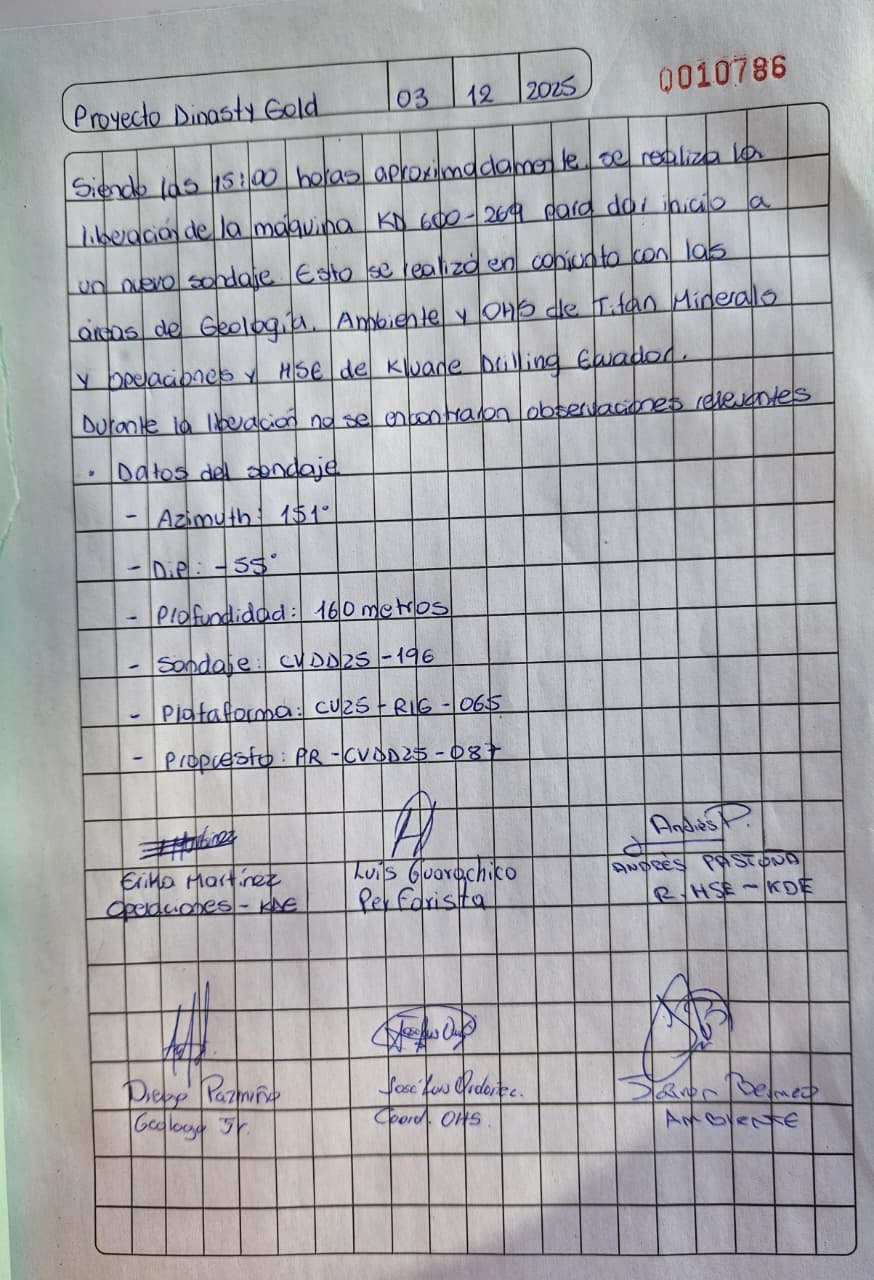 Proyecto Dinasty Gold 03 12 2025
0010786
Siendo las 15:00 horas aproximadamente se realiza la
liberación de la máquina KD 600-269 para dar inicio a
un nuevo sondaje. Esto se realizó en conjunto con las
áreas de Geología, Ambiente y OHS de Titan Minerals
y operaciones y HSE de Kluane Drilling Ecuador.
Durante la liberación no se encontraron observaciones relevantes
• Datos del sondaje
- Azimuth: 151°
- Dip: -55°
- Profundidad: 160 metros
- Sondaje: CVDD25-196
- Plataforma: CV25-RIG-065
- Propuesto: PR-CVDD25-087
Andrés P.
Erika Martínez Luis Guarachico ANDRÉS PASTUÑA
Operaciones - KDE Perforista R. HSE - KDE
Diego Pazmiño José Luis Ordoñez. Bermeo
Geólogo Jr. Coord. OHS. AMBIENTE